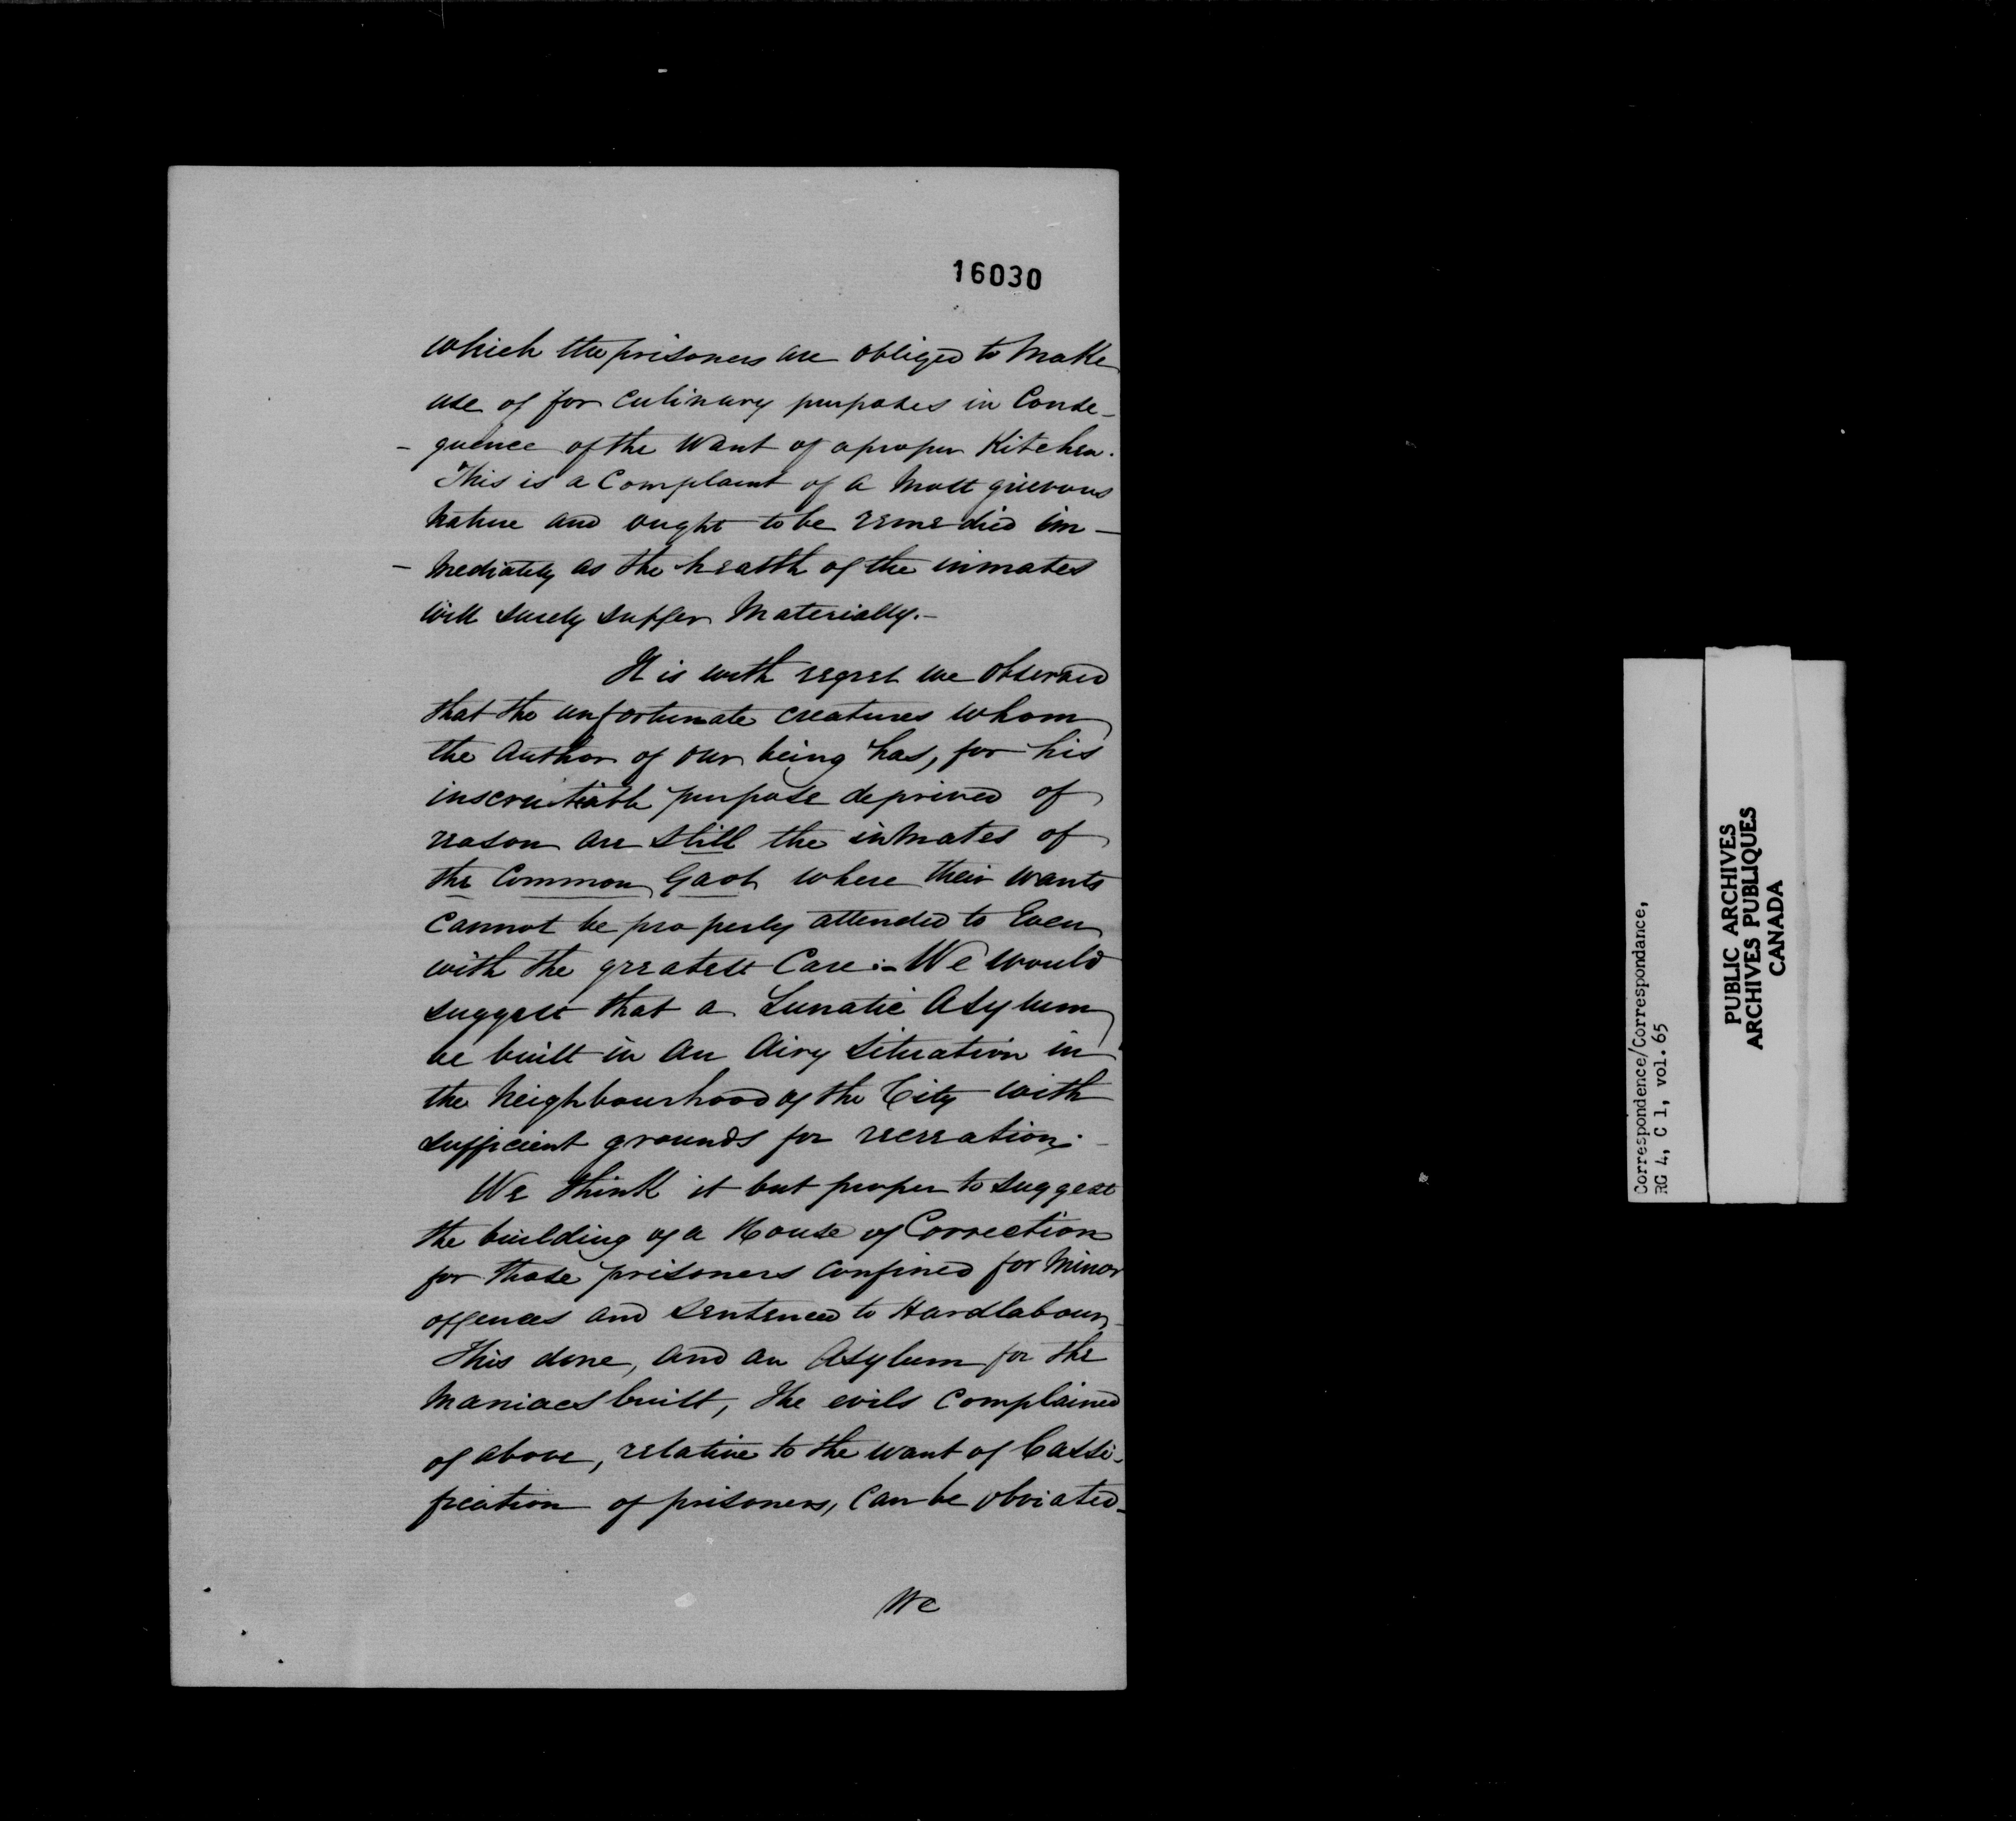 16030
which the prisoners are obliged to make
use of for culinary purposes in Conse-
- quence of the Want of a proper Kitchen.
This is a Complaint of a Most grievous
nature and ought to be remedied im-
- mediately as the health of the inmates
will surely suffer Materially.-
It is with regret we observed
that the unfortunate creatures whom
the Author of our being has, for his
inscrutable purpose deprived of
reason are still the inmates of
the Common Gaol where their wants
cannot be properly attended to Even
with the greatest Care:- We would
suggest that a Lunatic Asylum
be built in an Airy situation in
the Neighbourhood of the City with
sufficient grounds for recreation.-
We think it but proper to suggest
the building of a House of Correction
for those prisoners confined for Minor
offences and sentenced to Hardlabour
This done, and an Asylum for the
Maniacs built, the evils complained
of above, relative to the want of Cassi-
fication of prisoners, can be obviated-
We
Correspondence/Correspondance,
RG 4, C 1, vol. 65
PUBLIC ARCHIVES
ARCHIVES PUBLIQUES
CANADA